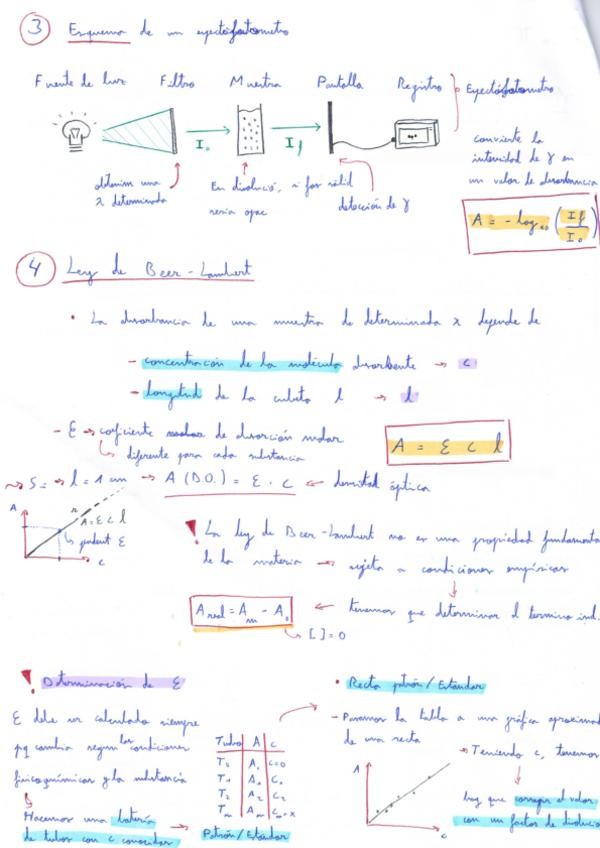 3 Esquema de un espectofotometro
Fuente de luz Filtro Muestra Pantalla Registro Espectofotometro
I₀ If
obtenim una
λ determinada
En disolució, si fos sòlid
seria opac
detección de γ
convierte la
intensidad de γ en
un valor de absorbancia
A = -log₁₀ (If/I₀)
4 Ley de Beer-Lambert
• La absorbancia de una muestra de determinada λ depende de
- concentración de la molécula absorbente → c
- longitud de la cubeta l → l
- ε → coeficiente molar de absorción molar
diferente para cada substancia
A = ε c l
→ S = → l = 1 cm → A (D.O.) = ε · c ← densitat óptica
A
A = ε c l
pendent ε
c
! La ley de Beer-Lambert no es una propiedad fundamenta
de la materia → sujeta a condiciones empíricas
A real = Am - A₀ ← tenemos que determinar el termino ind.
[ ] = 0
! Determinación de ε
ε debe ser calculado siempre
pq cambia segun las condiciones
fisicoquímicas y la substancia
Hacemos una batería
de tubos con c conocidas →
Tubo A c
T₀ A₀ c=0
T₁ A₁ C₁
T₂ A₂ C₂
Tm Am Cm=x
Patrón/Estándar
• Recta patrón/Estándar
- Pasamos la tabla a una gráfica aproximad
de una recta
→ Teniendo c, tenemos
A
c
hay que corregir el valor
con un factor de dilució